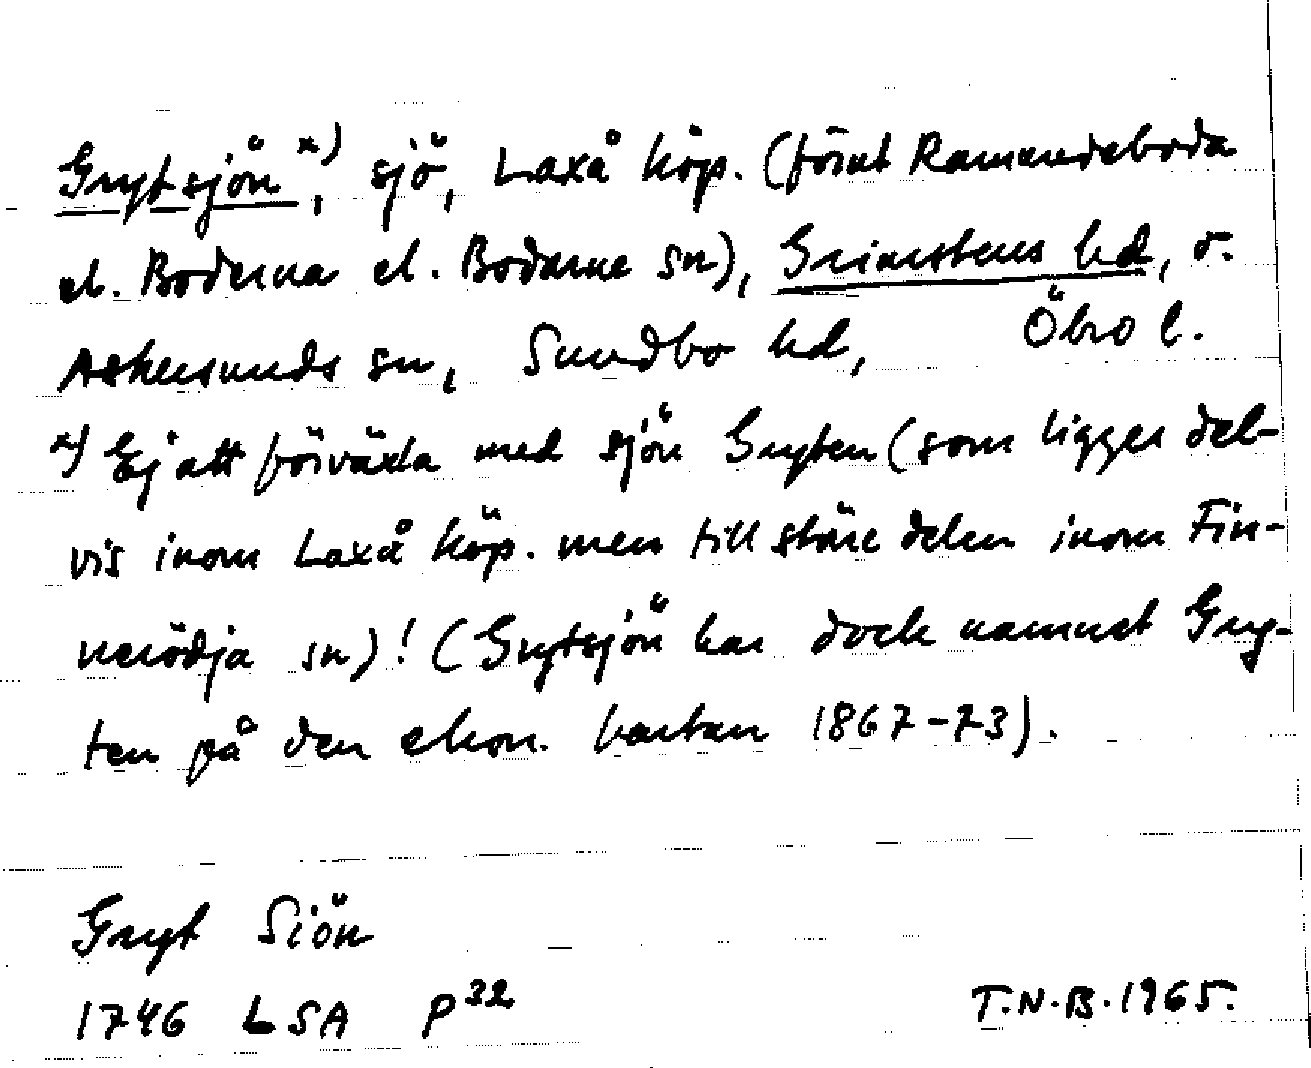 Grytsjön x), sjö, Laxå köp. (förut Ramundeboda
el. Boderna el. Bodarne sn), Grimstens hd, o.
Askersunds sn, Sundbo hd, Öbro l.
x) Ej att förväxla med sjön Gryten (som ligger del-
vis inom Laxå köp. men till större delen inom Fin-
nerödja sn)! (Grytsjön har dock namnet Gry-
ten på den ekon. kartan 1867-73).
Gryt Siön
1746 LSA P 32
T.N.B. 1965.